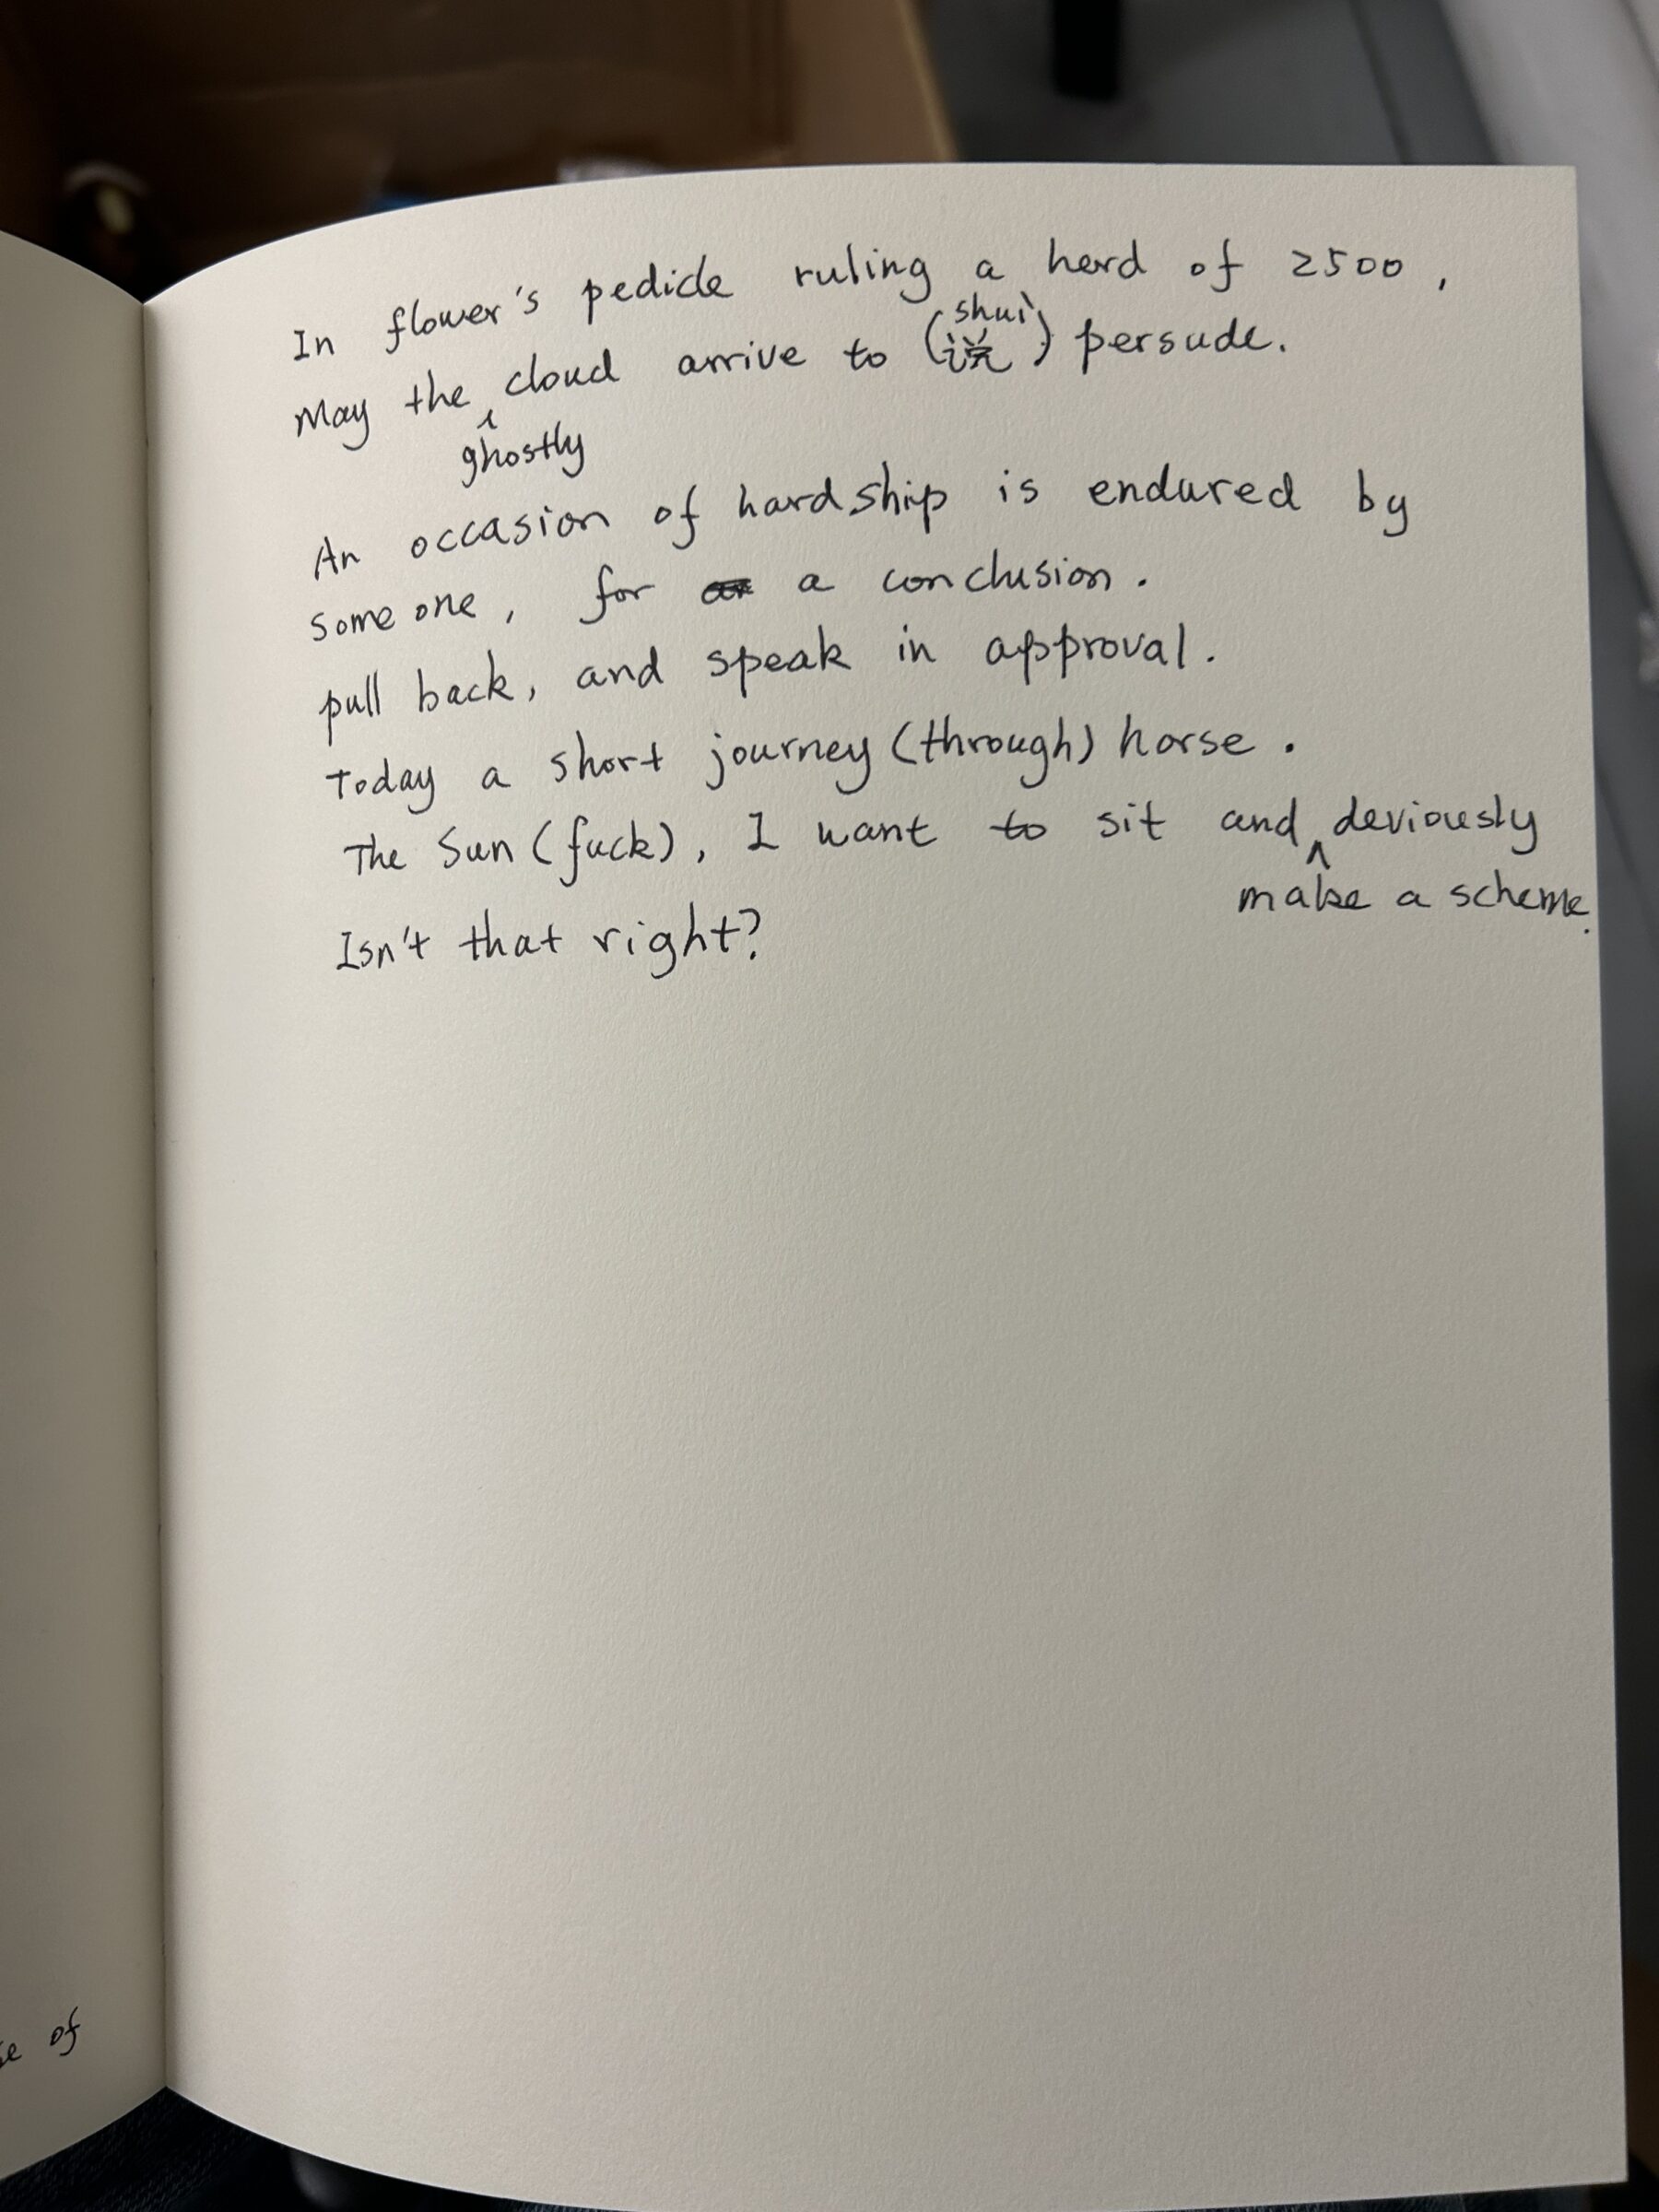 In flower's pedicle ruling a herd of 2500,
May the ghostly cloud arrive to (说 shuì) persude.
An occasion of hardship is endured by
someone, for a conclusion.
pull back, and speak in approval.
Today a short journey (through) horse.
The Sun (fuck), I want to sit and make a scheme deviously.
Isn't that right?
of